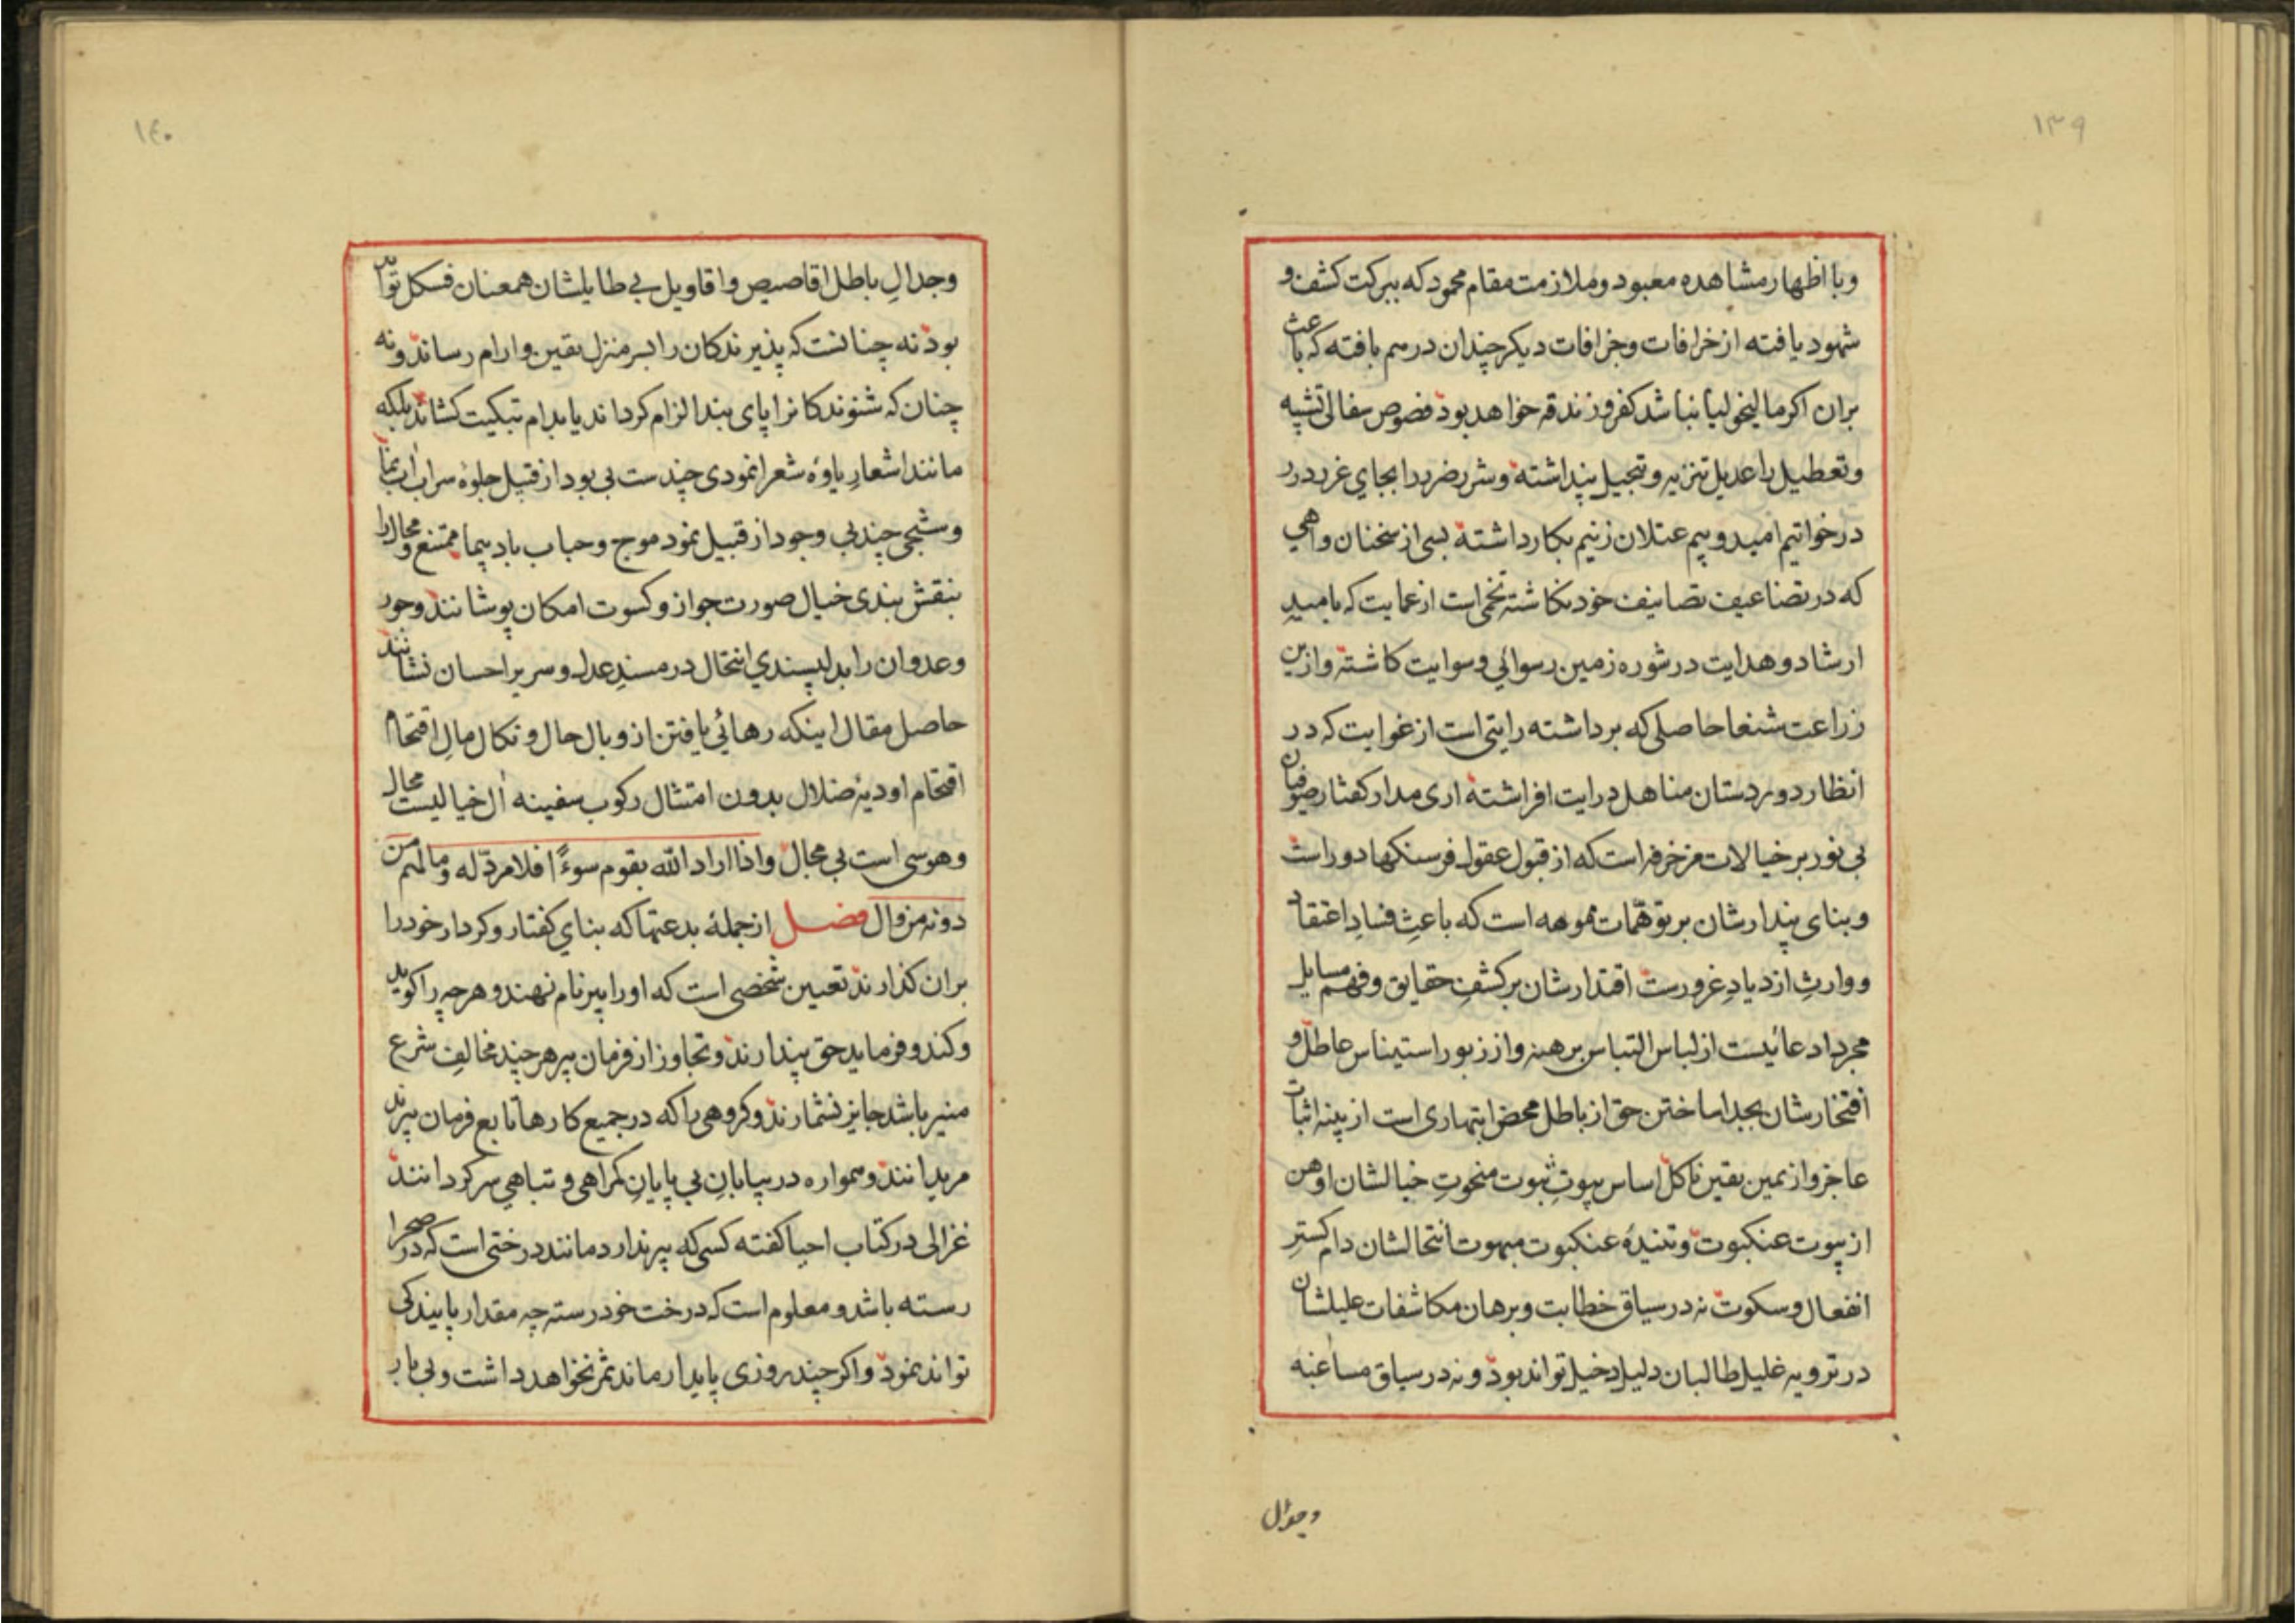 ١٣٩
وبا اظهار مشاهده معبود و ملازمت مقام محمود که ببرکت کشف و
شهود یافته از خرافات و جزافات دیکر چندان درهم بافته که باعث
بران اکر مالیخولیا نباشد کفر و زندقه خواهد بود فصوص سفالی تشبیه
و تعطیل را عدیل تنزیه و تبجیل پنداشته و شرر ضرر را بجای غرر درر
در خواتیم امید و بیم عتلان زنیم بکار داشته بسی از سخنان واهی
که در تضاعیف تصانیف خود نکاشته تخمی است از عمایت که بامید
ارشاد و هدایت در شوره زمین رسوائی و سوایت کاشته و ازین
زراعت شنعا حاصلی که برداشته رایتی است از غوایت که در
انظار دوردستان مناهل درایت افراشته اری مدار کفتار صوفیان
بی نور بر خیالات مزخرفه است که از قبول عقول فرسنکها دور است
و بنای پندارشان بر توهّمات مموهه است که باعثِ فسادِ اعتقاد
و وارثِ ازدیادِ غرورست اقتدارشان بر کشفِ حقایق و فهم مسایل
مجرد ادعائیست از لباس التباس برهنه و از زیور استیناس عاطل و
افتخارشان بجدا ساختن حق از باطل محض ابتهاری است از بینه اثبات
عاجز و از یمین یقین ناکل اساس بیوتِ ثبوت منحوتِ خیالشان اوهن
از بیوت عنکبوت و تنیدهٔ عنکبوت مبهوت انتحالشان دام کسترِ
انفعال و سکوت نه در سیاق خطابت و برهان مکاشفات علیلشان
در ترویه غلیل طالبان دلیل دخیل تواند بود و نه در سیاق مساغبه
وجدال
١٤٠
وجدالِ باطل اقاصیص و اقاویل بی طایلشان همعنان فسکل توا
بود نه چنانست که پذیرندکان را بسر منزل یقین و ارام رساند و نه
چنان که شنوندکانرا پای بند الزام کرداند یا بدام تبکیت کشاند بلکه
مانند اشعارِ یاوهٔ شعرا نمودی چند ست بی بود از قبیل جلوهٔ سراب اب نما
و شبحی چند بی وجود از قبیل نمود موج و حباب باد پیما ممتنع و محال را
بنقش بندی خیال صورت جواز و کسوت امکان پوشانند و جور
و عدوان را بدلپسندی انتحال در مسندِ عدل و سریر احسان نشانند
حاصل مقال اینکه رهائی یافتن از وبال حال و نکال مالِ اقتحام
اقتحام اودیهٔ ضلال بدون امتثال رکوب سفینه آل خیالیست محال
و هوسی است بی مجال واذا اراد الله بقوم سوءًا فلا مردّ له وما لهم من
دونه من وال فصل از جملهٔ بدعتها که بنای کفتار و کردار خود را
بران کذارند تعیین شخصی است که او را پیر نام نهند و هرچه را کوید
و کند و فرماید حق پندارند و تجاوز از فرمان پیر هر چند مخالفِ شرع
منیر باشد جایز نشمارند و کروهی را که در جمیع کارها تابع فرمان پیرند
مرید انند و همواره در بیابانِ بی پایانِ کمراهی و تباهی سرکردانند
غزالی در کتاب احیا کفته کسی که پیر ندارد مانند درختی است که در صحرا
رسته باشد و معلوم است که درخت خود رسته چه مقدار پایندکی
تواند نمود و اکر چند روزی پایدار ماند ثمر نخواهد داشت و بی بار